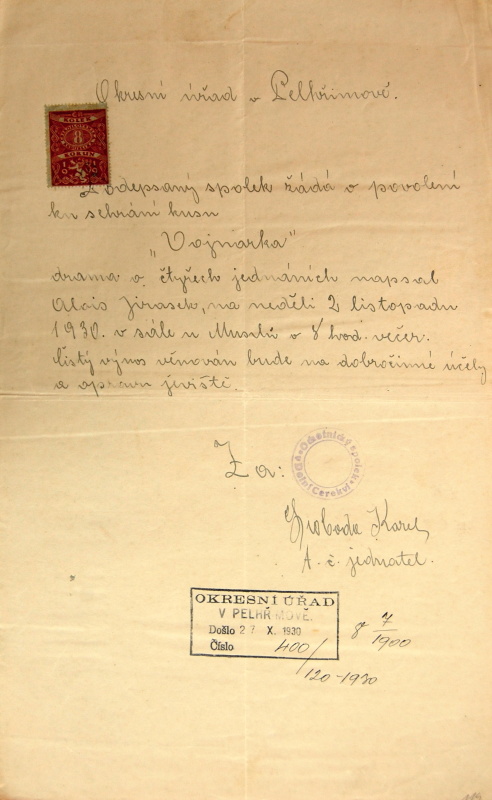 Okresní úřad v Pelhřimově.
KOLEK
8
KORUN
Podepsaný spolek žádá o povolení
ku sehrání kusu
„Vojnarka“
drama o čtyřech jednáních napsal
Alois Jirasek, na neděli 2 listopadu
1930. v sále u Musilů o 8 hod. večer.
čistý výnos věnován bude na dobročinné účely
a opravu jeviště.
Za:
Svoboda Karel
t. č. jednatel.
OKRESNÍ ÚŘAD
V PELHŘIMOVĚ.
Došlo 27 X. 1930
Číslo 400/
120-1930
8 7/1900